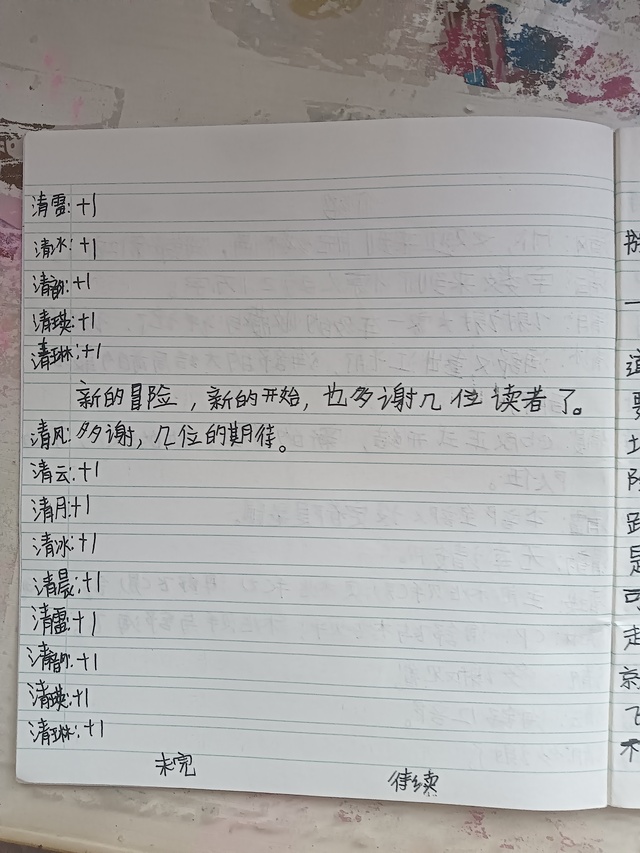 清雷:+1
清水:+1
清韵:+1
清瑛:+1
清琳:+1
新的冒险,新的开始,也多谢几位读者了。
清风:多谢,几位的期待。
清云:+1
清月:+1
清冰:+1
清晨:+1
清雷:+1
清韵:+1
清瑛:+1
清琳:+1
未完 待续